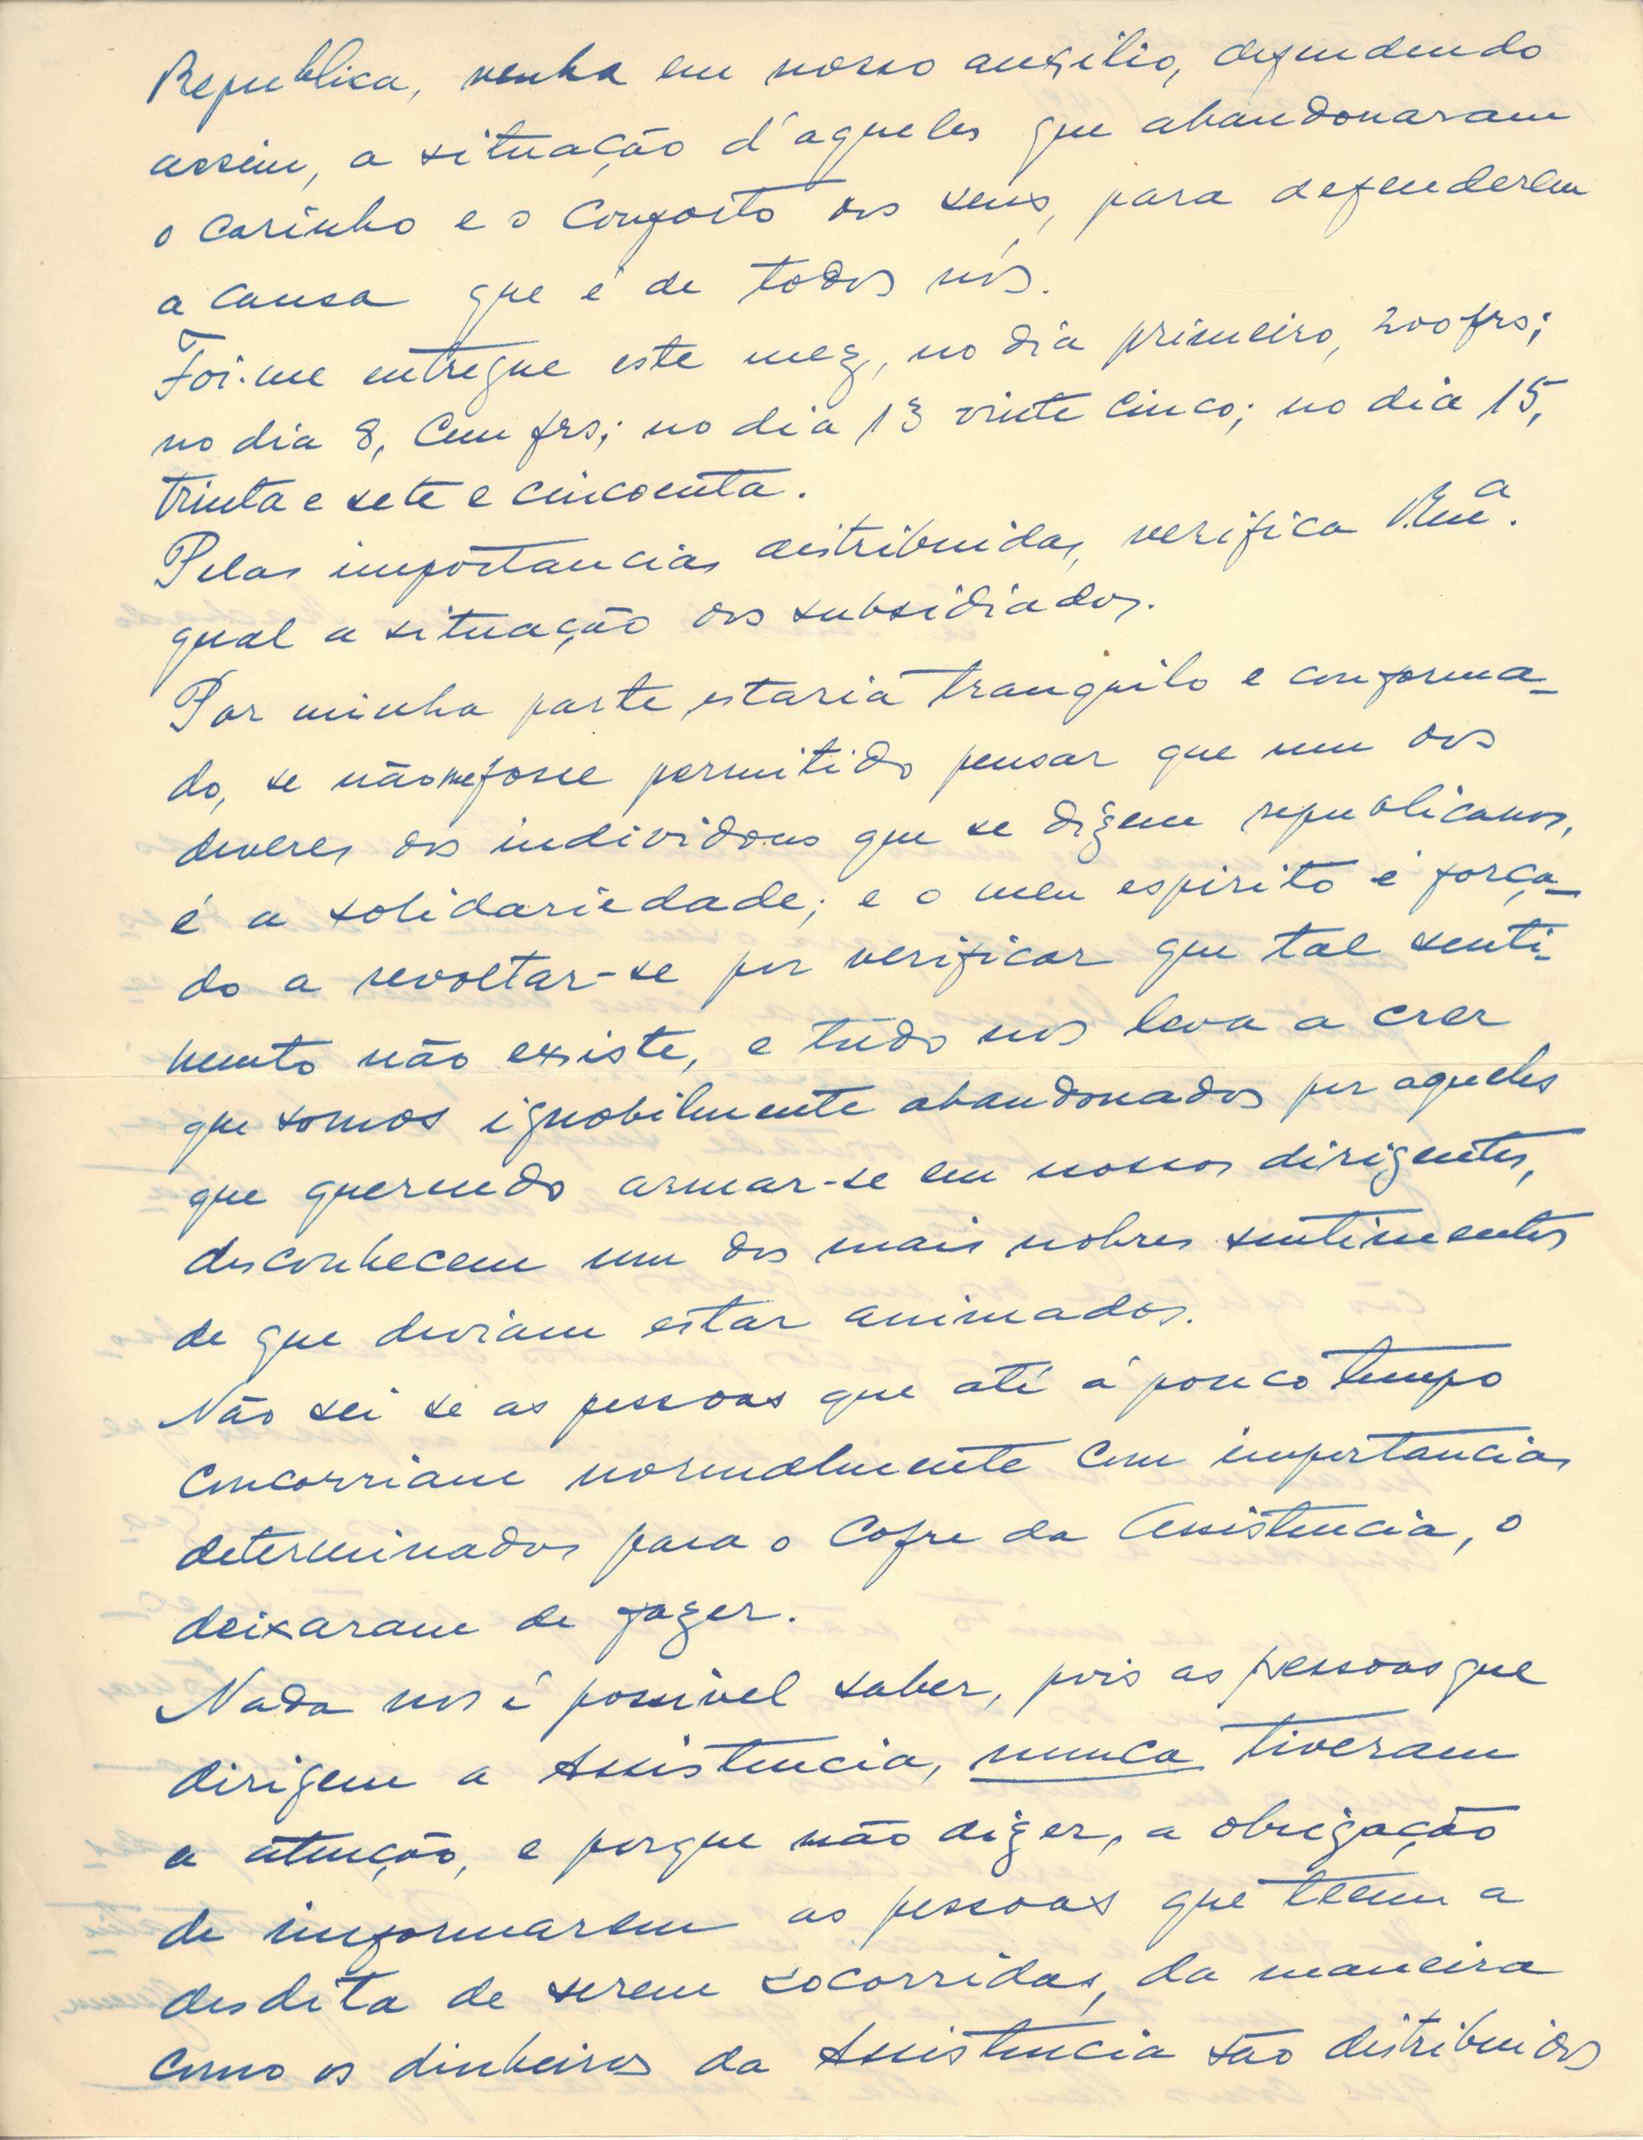 Republica, venha em nosso auxilio, defendendo
assim, a situação d'aqueles que abandonaram
o carinho e o conforto dos seus, para defenderem
a causa que é de todos nós.
Foi-me entregue este mez, no dia primeiro, 200 frs;
no dia 8, cem frs; no dia 13 vinte cinco; no dia 15,
trinta e sete e cincoenta.
Pelas importancias distribuidas, verifica V. Exª.
qual a situação dos subsidiados.
Por minha parte, estaria tranquilo e conforma-
do, se não me fosse permitido pensar que um dos
deveres dos individous que se dizem republicanos,
é a solidariedade; e o meu espirito é força-
do a revoltar-se por verificar que tal senti-
mento não existe, e tudo nos leva a crer
que somos ignobilmente abandonados por aqueles
que querendo armar-se em nossos dirigentes,
desconhecem um dos mais nobres sentimentos
de que deviam estar animados.
Não sei se as pessoas que até á pouco tempo
concorriam normalmente com importancias
determinados para o Cofre da Assistencia, o
deixaram de fazer.
Nada nos é possivel saber, pois as pessoas que
dirigem a Assistencia, nunca tiveram
a atenção, e porque não dizer, a obrigação
de informarem as pessoas que teem a
desdita de serem socorridas, da maneira
como os dinheiros da Assistencia são distribuidos